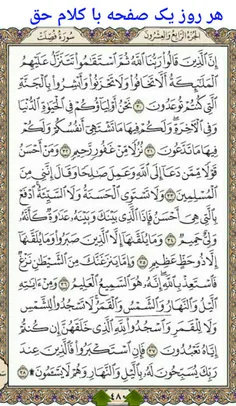 هر روز یک صفحه با کلام حق
الجزء الرابع والعشرون سورة فصلت
إِنَّ ٱلَّذِينَ قَالُوا۟ رَبُّنَا ٱللَّهُ ثُمَّ ٱسْتَقَٰمُوا۟ تَتَنَزَّلُ عَلَيْهِمُ
ٱلْمَلَٰٓئِكَةُ أَلَّا تَخَافُوا۟ وَلَا تَحْزَنُوا۟ وَأَبْشِرُوا۟ بِٱلْجَنَّةِ
ٱلَّتِى كُنتُمْ تُوعَدُونَ ٣٠ نَحْنُ أَوْلِيَآؤُكُمْ فِى ٱلْحَيَوٰةِ ٱلدُّنْيَا
وَفِى ٱلْءَاخِرَةِ وَلَكُمْ فِيهَا مَا تَشْتَهِىٓ أَنفُسُكُمْ وَلَكُمْ
فِيهَا مَا تَدَّعُونَ ٣١ نُزُلًا مِّنْ غَفُورٍ رَّحِيمٍ ٣٢ وَمَنْ أَحْسَنُ
قَوْلًا مِّمَّن دَعَآ إِلَى ٱللَّهِ وَعَمِلَ صَٰلِحًا وَقَالَ إِنَّنِى مِنَ
ٱلْمُسْلِمِينَ ٣٣ وَلَا تَسْتَوِى ٱلْحَسَنَةُ وَلَا ٱلسَّيِّئَةُ ٱدْفَعْ
بِٱلَّتِى هِىَ أَحْسَنُ فَإِذَا ٱلَّذِى بَيْنَكَ وَبَيْنَهُۥ عَدَٰوَةٌ كَأَنَّهُۥ
وَلِىٌّ حَمِيمٌ ٣٤ وَمَا يُلَقَّىٰهَآ إِلَّا ٱلَّذِينَ صَبَرُوا۟ وَمَا يُلَقَّىٰهَآ
إِلَّا ذُو حَظٍّ عَظِيمٍ ٣٥ وَإِمَّا يَنزَغَنَّكَ مِنَ ٱلشَّيْطَٰنِ نَزْغٌ
فَٱسْتَعِذْ بِٱللَّهِ إِنَّهُۥ هُوَ ٱلسَّمِيعُ ٱلْعَلِيمُ ٣٦ وَمِنْ ءَايَٰتِهِ
ٱلَّيْلُ وَٱلنَّهَارُ وَٱلشَّمْسُ وَٱلْقَمَرُ لَا تَسْجُدُوا۟ لِلشَّمْسِ
وَلَا لِلْقَمَرِ وَٱسْجُدُوا۟ لِلَّهِ ٱلَّذِى خَلَقَهُنَّ إِن كُنتُمْ
إِيَّاهُ تَعْبُدُونَ ٣٧ فَإِنِ ٱسْتَكْبَرُوا۟ فَٱلَّذِينَ عِندَ
رَبِّكَ يُسَبِّحُونَ لَهُۥ بِٱلَّيْلِ وَٱلنَّهَارِ وَهُمْ لَا يَسْـَٔمُونَ ٣٨
٤٨٠